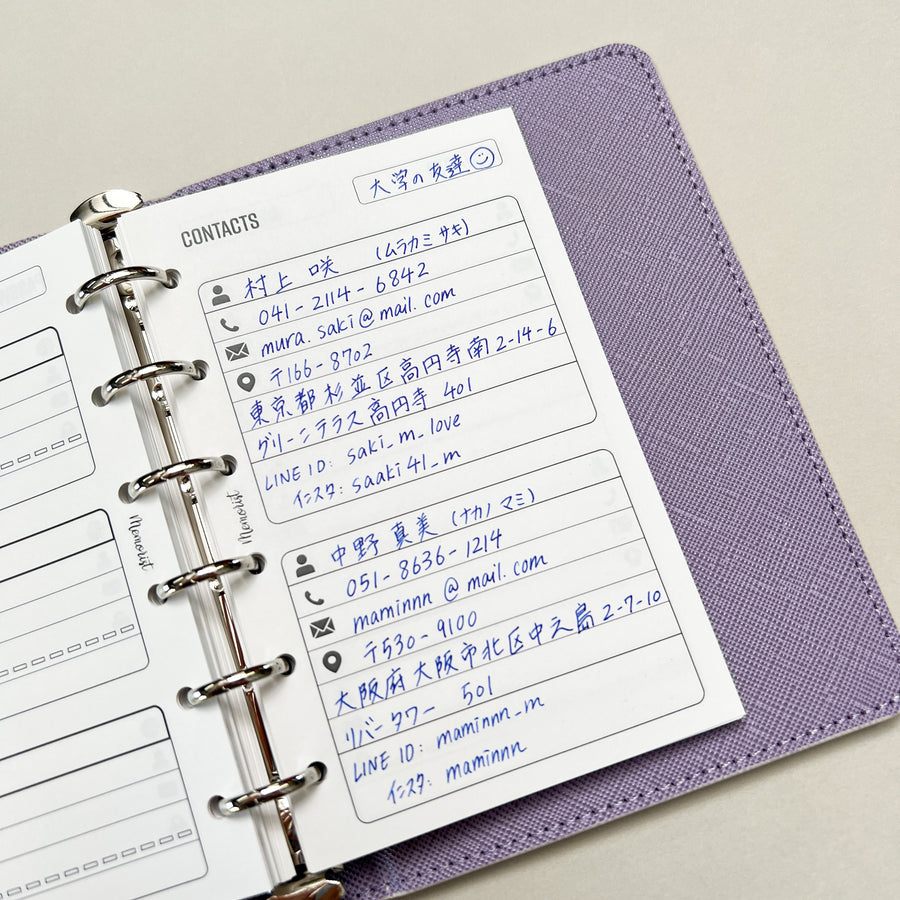 大学の友達
CONTACTS
村上 咲 (ムラカミ サキ)
041-2114-6842
mura.saki@mail.com
〒166-8702
東京都杉並区高円寺南2-14-6
グリーンテラス高円寺 401
LINE ID: saki_m_love
インスタ: saaki41_m
中野 真美 (ナカノ マミ)
051-8636-1214
maminnn@mail.com
〒530-9100
大阪府大阪市北区中之島2-7-10
リバータワー 501
LINE ID: maminnn_m
インスタ: maminnn
Memorist
Memorist